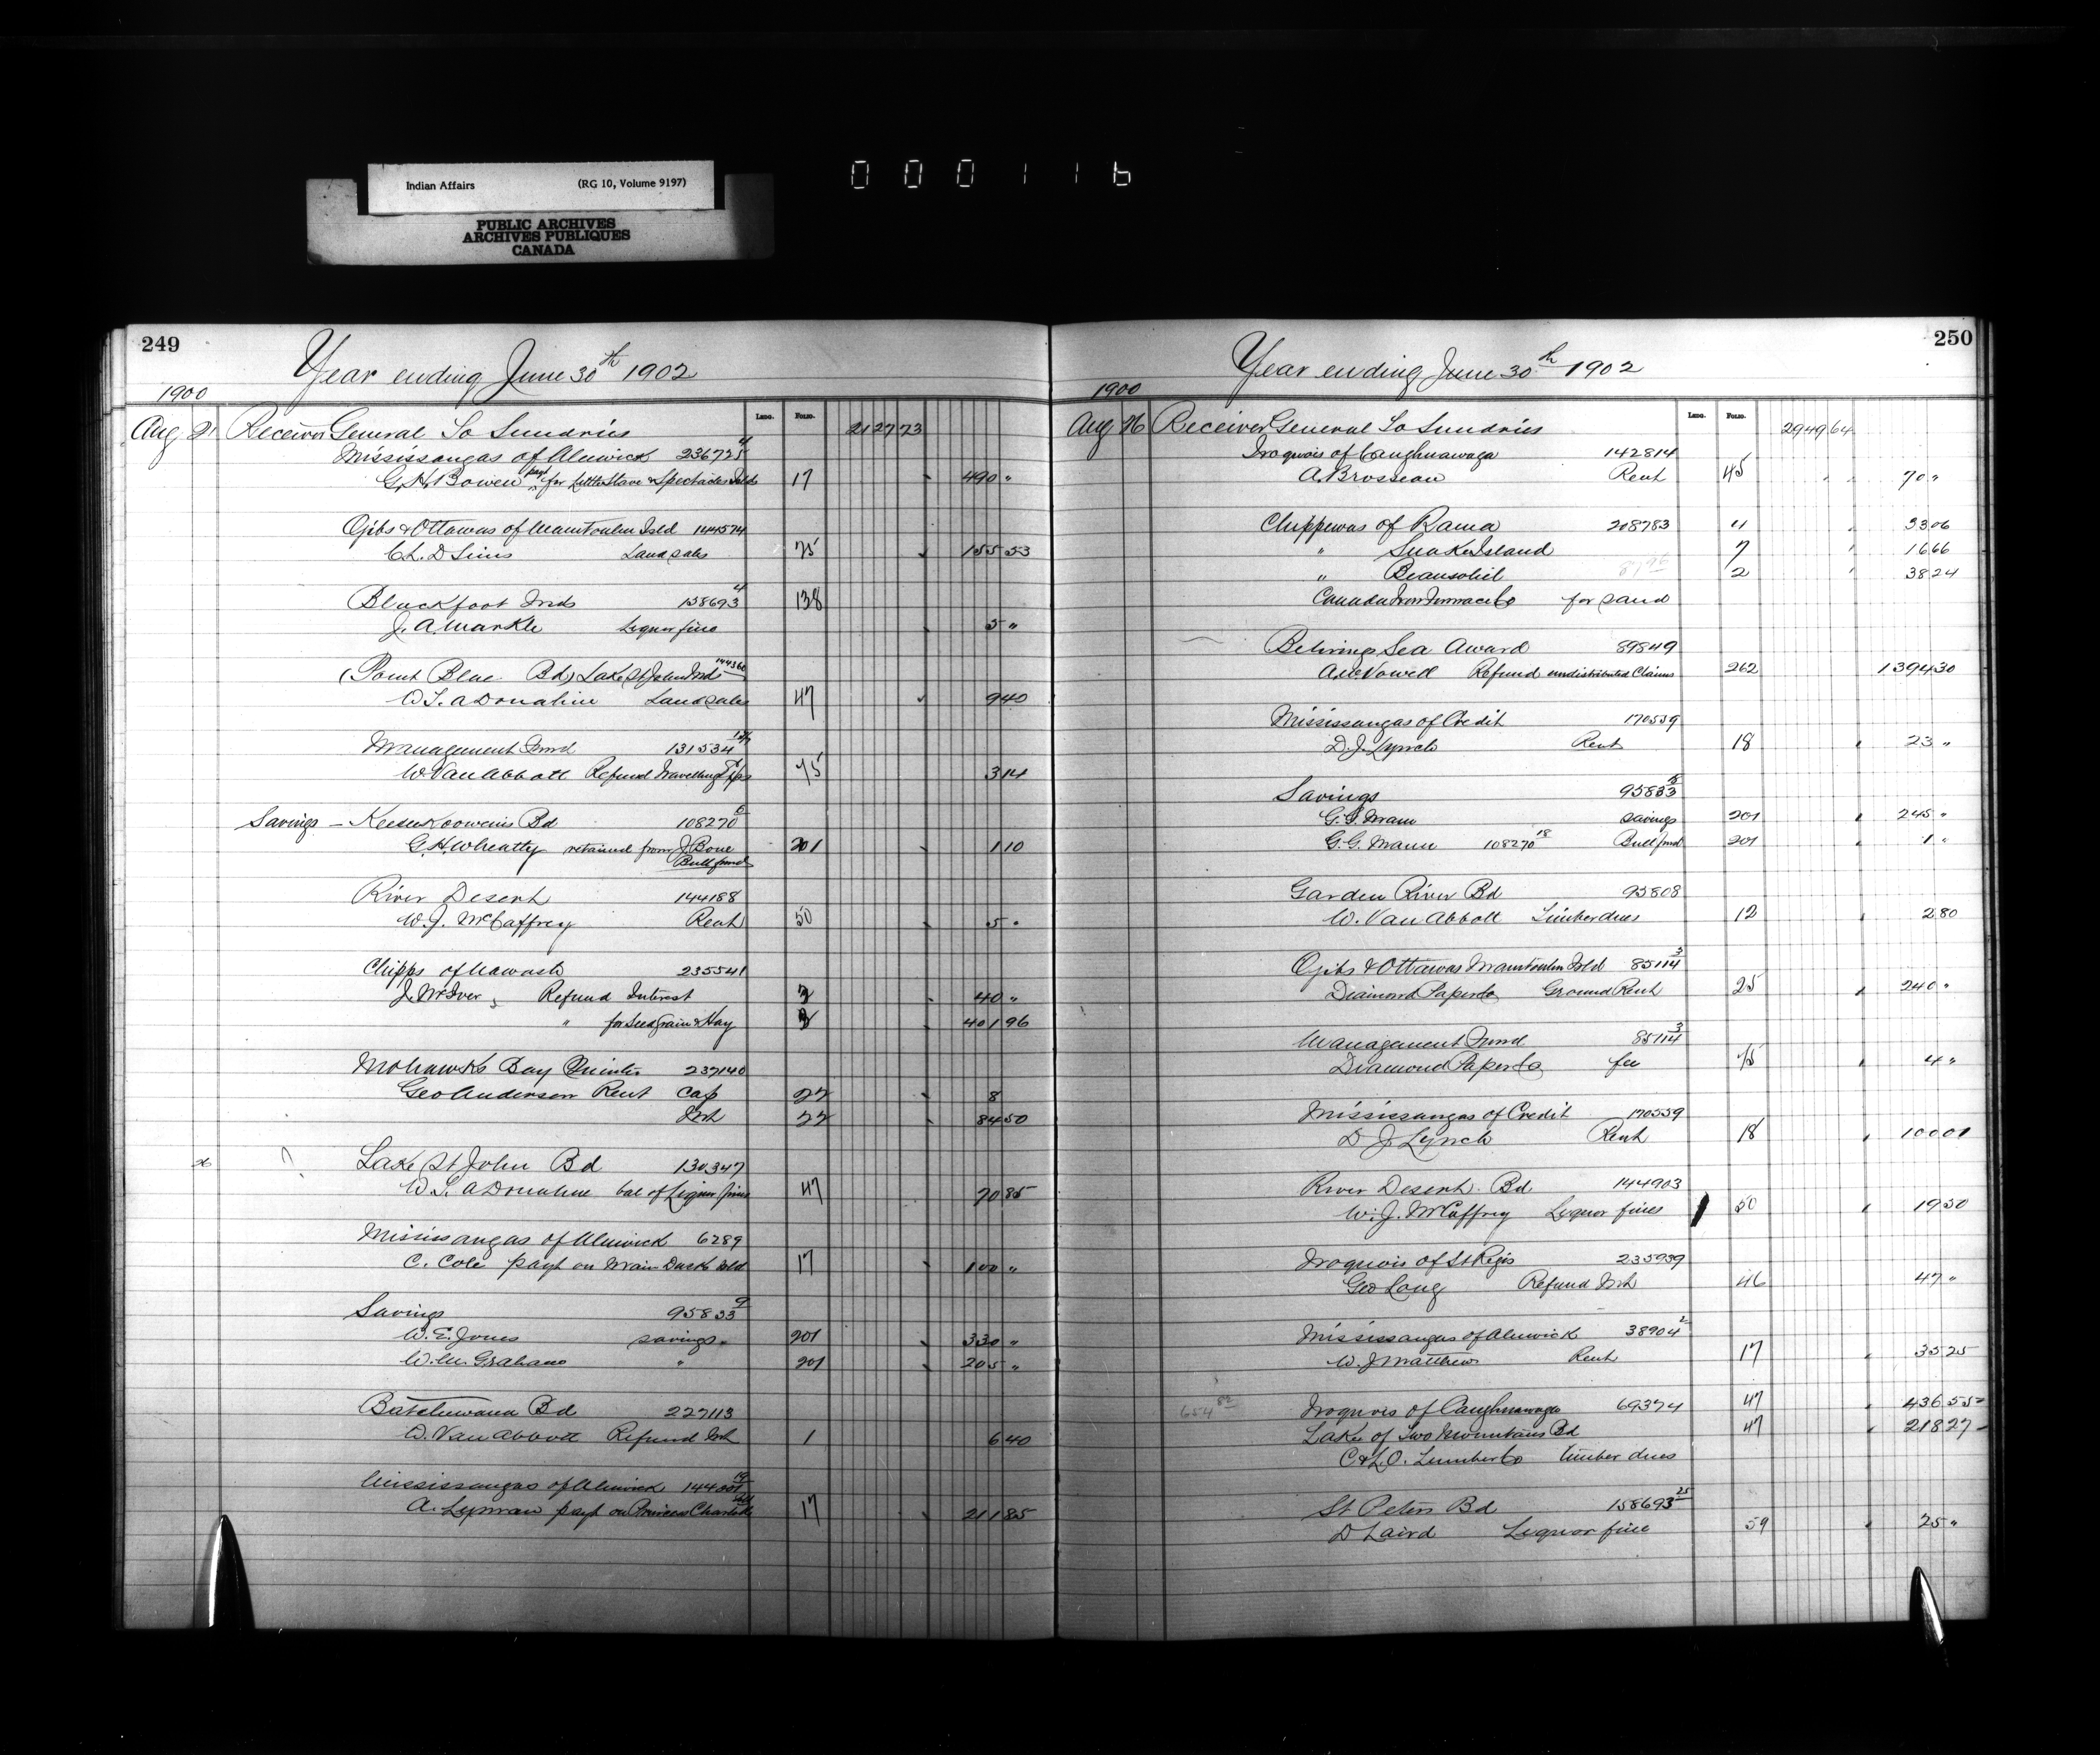 Indian Affairs (RG 10, Volume 9197)
PUBLIC ARCHIVES
ARCHIVES PUBLIQUES
CANADA
000116
249
Year ending June 30th 1902
1900
Folio.
Aug 21 Receiver General To Sundries 2127 73
Mississaugas of Alnwick 236725 4
G.H. Bowen payt for Little Slave & Spectacles Islds 17 490 "
Ojibs & Ottawas of Manitoulin Isld 144574
C.L.D Sims Land sales 75 155 53
Blackfoot Inds 158693 4 138
J.A. Markle Liquor fine 5 "
(Point Blue Bd) Lake St John Inds 144360
W.T.A Donahue Land sales 47 9 40
Management Fund 131534
W. Van Abbott Refund Travelling Exps 75 3 14
Savings - Keeseekoowenins Bd 108270 6
G.H. Wheatly retained from J. Bone 201 1 10
Bull fund
River Desert 144188
W.J. McCaffrey Rent 50 5 "
Chipps of Nawash 235541
J. McIver Refund Interest 3 40 "
" for Seed Grain & Hay 3 401 96
Mohawks Bay Quinte 237140
Geo Anderson Rent Cap 22 8
Int 22 84 50
26 ? Lake St John Bd 130347
W.T. A Donahue bal of Liquor fines 47 70 85
Mississaugas of Alnwick 6289
C. Cole payt on Main Duck Isld 17 100 "
Savings 95833 9
W.E. Jones savings 201 330 "
W.M. Graham " 201 205 "
Batchewana Bd 227113
W. Van Abbott Refund Int 1 6 40
Mississaugas of Alnwick 144001 19
A. Lyman payt on Princess Charlotte Isld 17 211 85
250
Year ending June 30th 1902
1900
Folio.
Aug 26 Receiver General To Sundries 2949 64
Iroquois of Caughnawaga 142814
A. Brosseau Rent 45 70 "
Chippewas of Rama 208783 11 33 06
" Snake Island 7 16 66
" Beausoliel 87 96 2 38 24
Canada Iron Furnace Co for sand
Behring Sea Award 89849
A.W. Vowell Refund undistributed Claims 262 1394 30
Mississaugas of Credit 170559
D.J. Lynch Rent 18 23 "
Savings 95833 15
G.G. Mann savings 201 245 "
G.G. Mann 108270 18 Bull fund 201 1 "
Garden River Bd 95808
W. Van Abbott Timber dues 12 2 80
Ojibs & Ottawas Manitoulin Isld 85114 3
Diamond Paper Co Ground Rent 25 240 "
Management Fund 85114 3
Diamond Paper Co fee 75 4 "
Mississaugas of Credit 170559
D J Lynch Rent 18 100 01
River Desert Bd 144903
W.J. McCaffrey Liquor fines 50 19 50
Iroquois of St Regis 235939
Geo Long Refund Int 46 47 "
Mississaugas of Alnwick 38904 2
W. J Matthews Rent 17 35 25
654 82 Iroquois of Caughnawaga 69374 47 436 55
Lake of Two Mountains Bd 47 218 27
C & L.O. Lumber Co timber dues
St Peters Bd 158693 25
D Laird Liquor fine 59 25 "